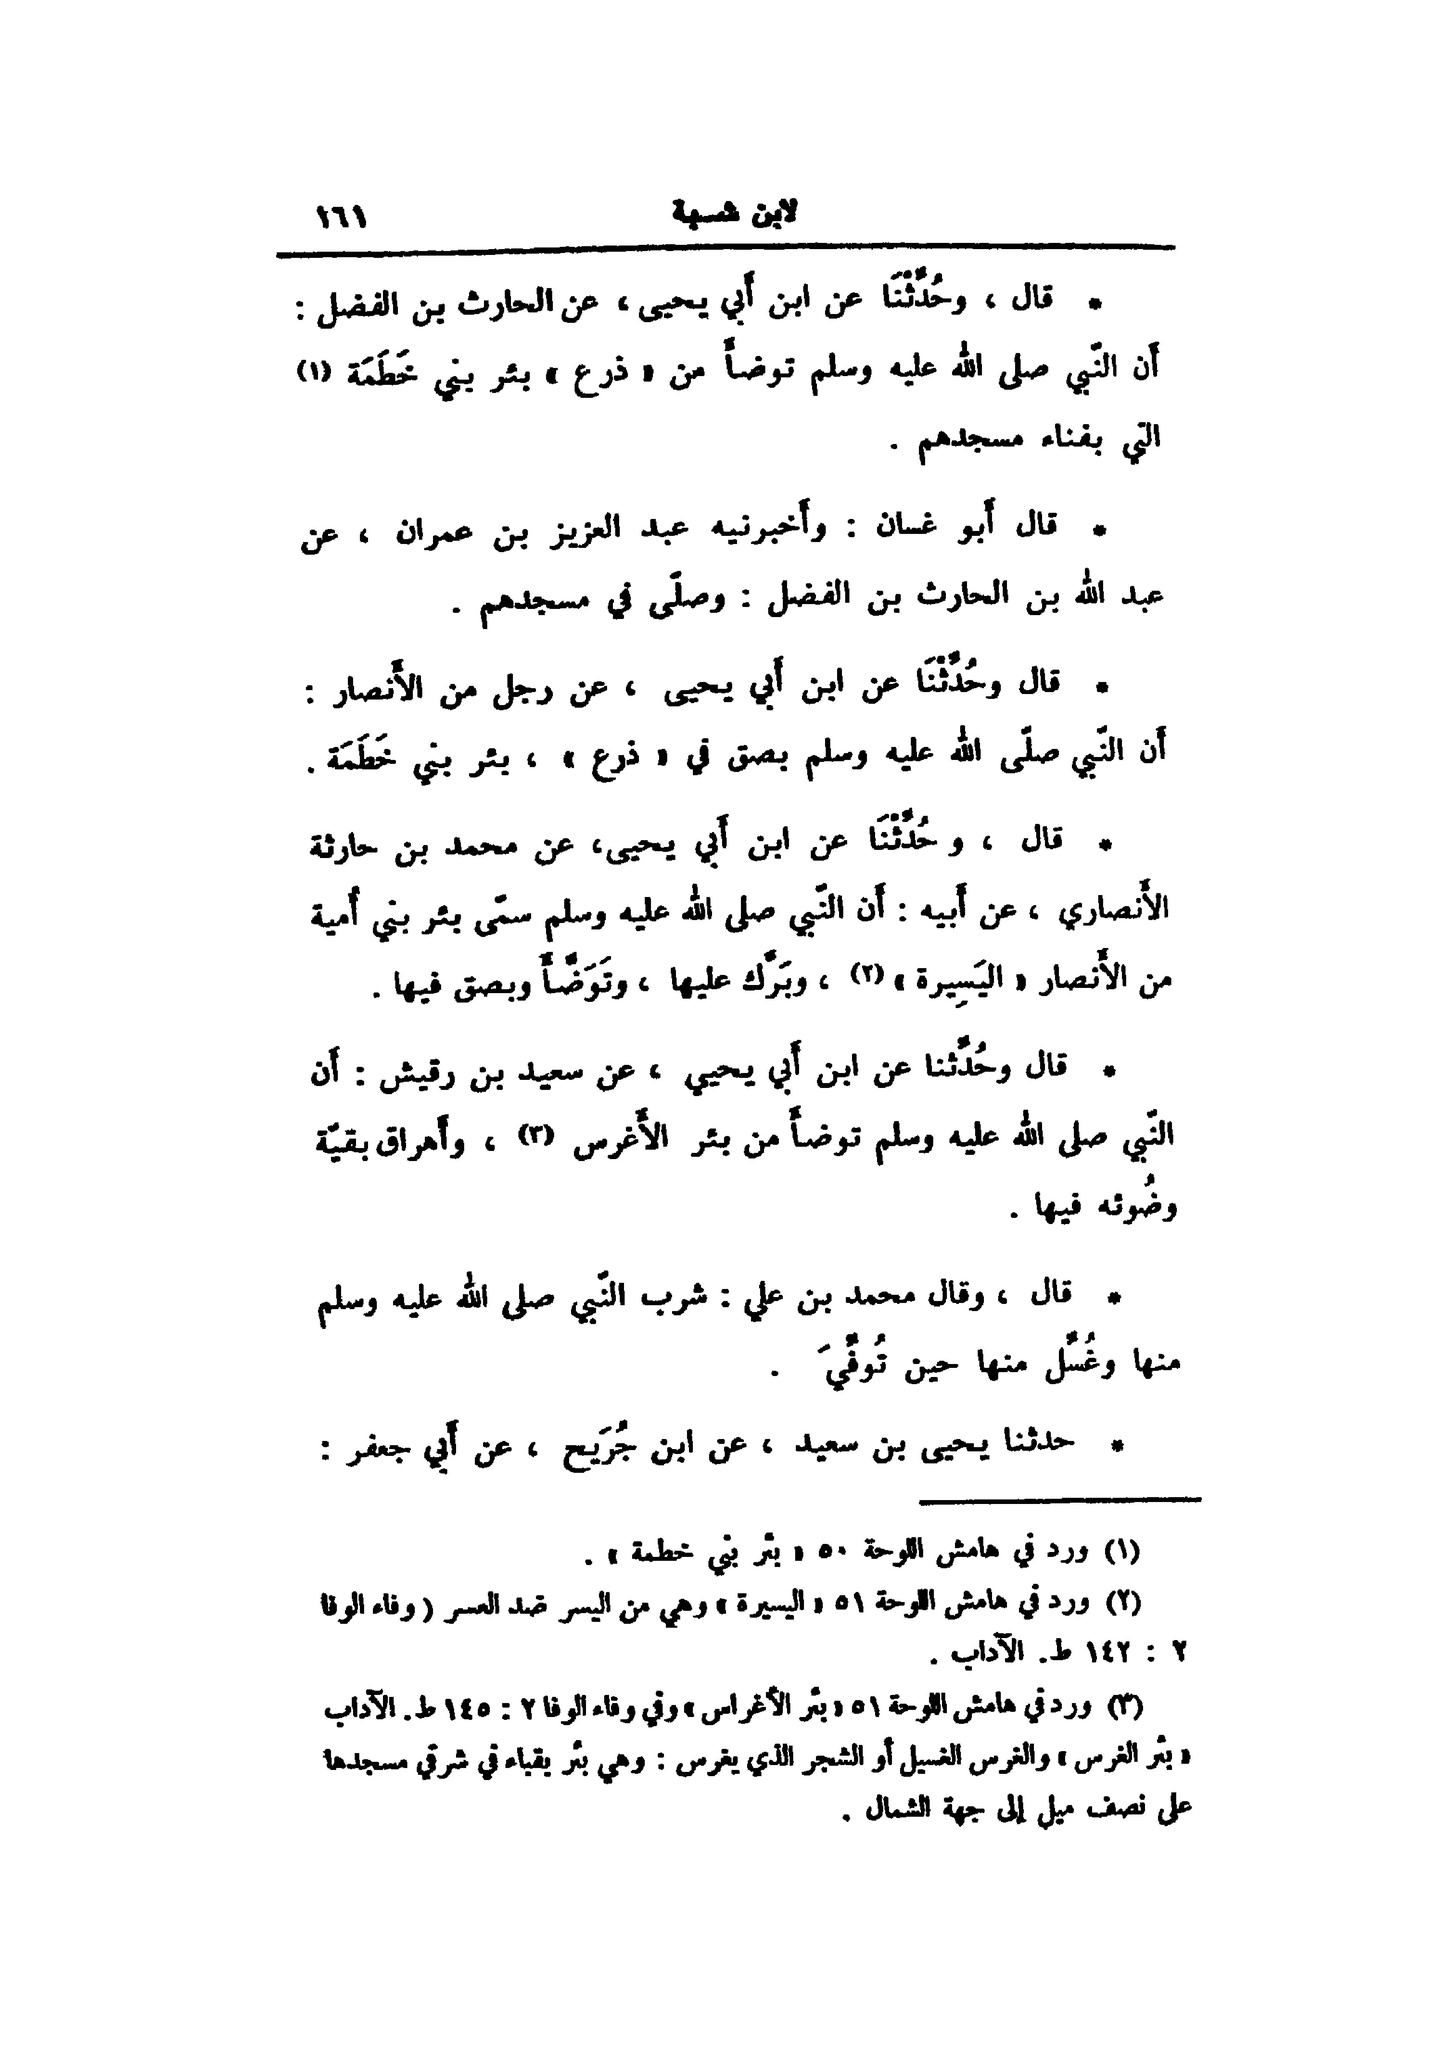 لابن شبة ١٦١
* قال ، وحُدِّثْنَا عن ابن أَبي يحيى ، عن الحارث بن الفضل :
أَن النّبي صلى الله عليه وسلم توضأَ من « ذرع » بئر بني خَطَمَة (١)
التي بفناء مسجدهم .
* قال أَبو غسان : وأَخبرنيه عبد العزيز بن عمران ، عن
عبد الله بن الحارث بن الفضل : وصلّى في مسجدهم .
* قال وحُدِّثْنَا عن ابن أَبي يحيى ، عن رجل من الأَنصار :
أَن النّبي صلّى الله عليه وسلم بصق في « ذرع » ، بئر بني خَطَمَة .
* قال ، و حُدِّثْنَا عن ابن أَبي يحيى، عن محمد بن حارثة
الأَنصاري ، عن أَبيه : أَن النّبي صلى الله عليه وسلم سمّى بئر بني أُمية
من الأَنصار « اليَسِيرة » (٢) ، وبَرَّك عليها ، وتَوَضَّأَ وبصق فيها .
* قال وحُدِّثنا عن ابن أَبي يحيي ، عن سعيد بن رقيش : أَن
النّبي صلى الله عليه وسلم توضأَ من بئر الأَغرس (٣) ، وأَهراق بقيّة
وضُوئه فيها .
* قال ، وقال محمد بن علي : شرب النّبي صلى الله عليه وسلم
منها وغُسِّل منها حين تُوفِّيَ .
* حدثنا يحيى بن سعيد ، عن ابن جُرَيح ، عن أَبي جعفر :
(١) ورد في هامش اللوحة ٥٠ « بئر بني خطمة » .
(٢) ورد في هامش اللوحة ٥١ « اليسيرة » وهي من اليسر ضد العسر ( وفاء الوفا
٢ : ١٤٢ ط. الآداب .
(٣) ورد في هامش اللوحة ٥١ « بئر الأغراس » وفي وفاء الوفا ٢ : ١٤٥ ط. الآداب
« بئر الغرس » والغرس الفسيل أو الشجر الذي يغرس : وهي بئر بقباء في شرقي مسجدها
على نصف ميل إلى جهة الشمال .